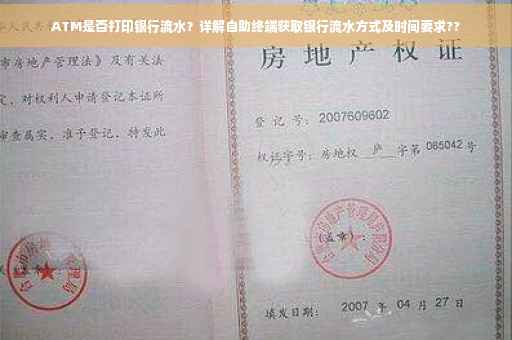 ATM是否打印银行流水？详解自助终端获取银行流水方式及时间要求??
市房地产管理法》及有关法
定，对权利人申请登记本证所
审查属实，准予登记，特发此
房地产权证
登记号：2007609602
权证字号：房地权 庐 字第 085042 号
(盖章)：
填发日期：2007 年 04 月 27 日